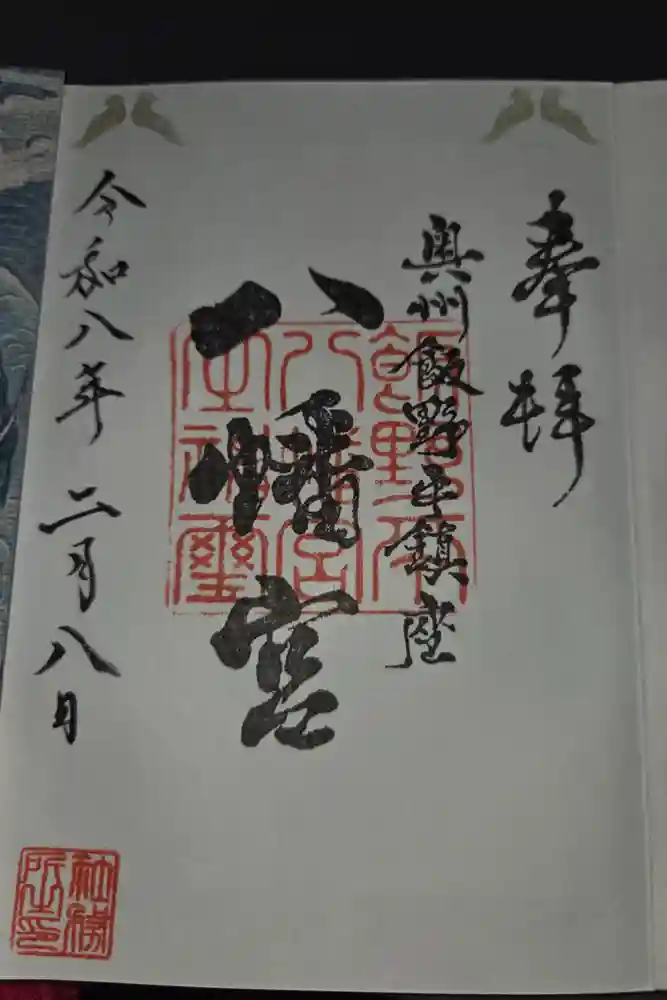 奉拝
奥州飯野平鎮座
八幡宮
飯野平
八幡宮
座神璽
令和八年二月八日
社務
所印